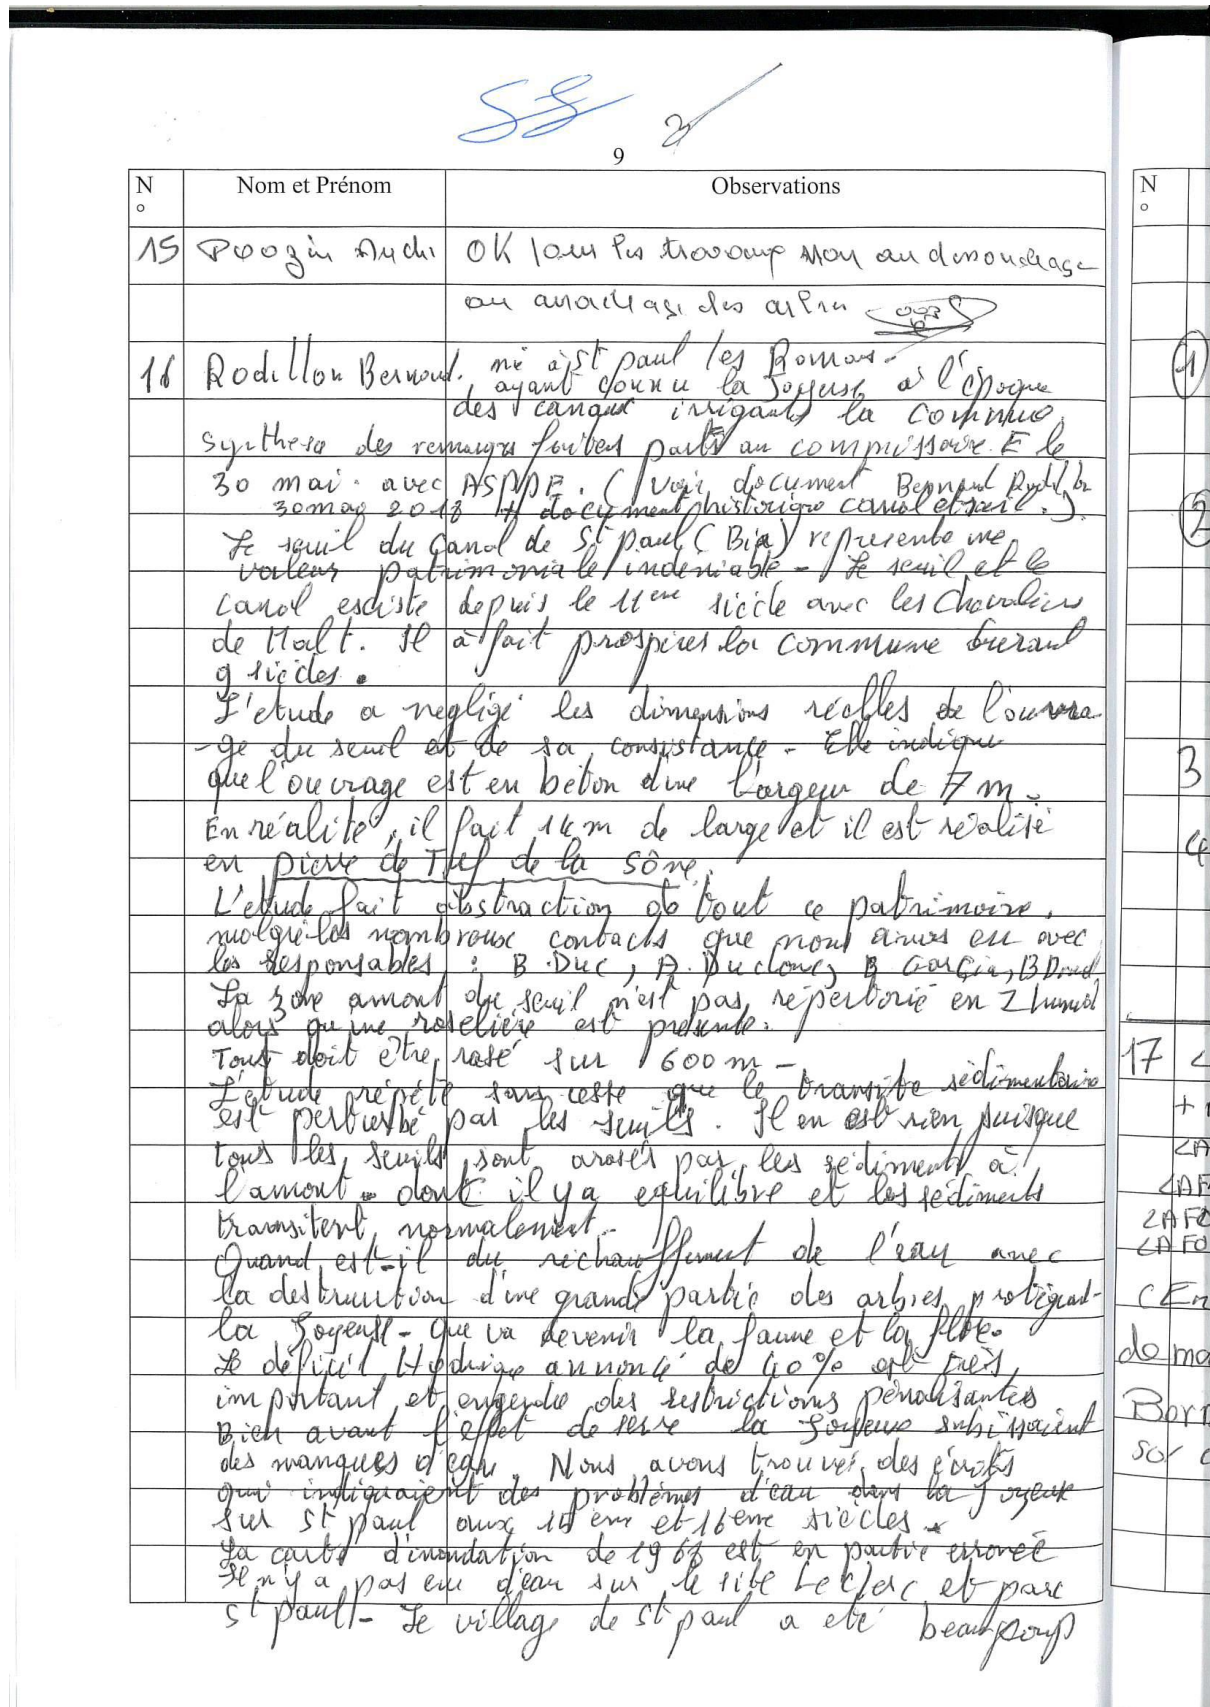 9
N° Nom et Prénom Observations
15 OK pour les travaux Non au dessouchage
ou arrachage des arbres
16 Rodillon Bernard. né à St paul les Romans.
ayant connu la Joyeuse à l'époque
des canaux irrigants la commune
Synthese des remarqs faites partS au commissaire. E le
30 mai. avec ASPPE. (voir document Bernard Rodillon
30 mai 2018 + document historique canal et seuil.).
Le seuil du Canal de St paul (Bia) represente une
valeur patrimoniale indeniable - Le seuil et le
canal existe depuis le 11eme siècle avec les Chevaliers
de Malt. Il à fait prosperes la commune durant
9 siècles.
L'etude a negligé les dimensions réelles de l'ouvra-
-ge du seuil et de sa consistance - Elle indique
que l'ouvrage est en béton d'une largeur de 7 m.
En réalité, il fait 14m de large et il est réalisé
en pierre de Tuf de la Sône.
L'etude fait abstraction de tout ce patrimoine.
malgré les nombreux contacts que nous avons eu avec
les responsables : B. Duc, A. Duclaux, B Garçia, B
La zone amont du seuil n'est pas répertorié en Z humid
alors qu'une roselière est présente.
Tout doit etre rasé sur 600 m -
L'étude répète sans cesse que le transite sédimentaire
est perturbé par les seuils. Il en est rien puisque
tous les seuils sont arasés par les sédiments à
l'amont - donc il y a equilibre et les sédiments
transitent normalement -
Quand est-il du rechauffement de l'eau avec
la destruction d'une grande partie des arbres protégeant
la Joyeuse - que va devenir la faune et la flore.
Le déficit Hydrique annoncé de 40% est très
important et engendre des restrictions pénalisantes
Bien avant l'effet de serre la Joyeuse subissaient
des manques d'eau. Nous avons trouvé des écrits
qui indiquaient des problèmes d'eau dans la Joyeuse
sur St paul aux 15 eme et 16 eme siècles.
La carte d'inondation de 1968 est en partie erronée
Il n'y a pas eu d'eau sur le site Leclerc et parc
St paul - Le village de St paul a eté beaucoup
N°
1
2
3
4
17
+
dema
Bern